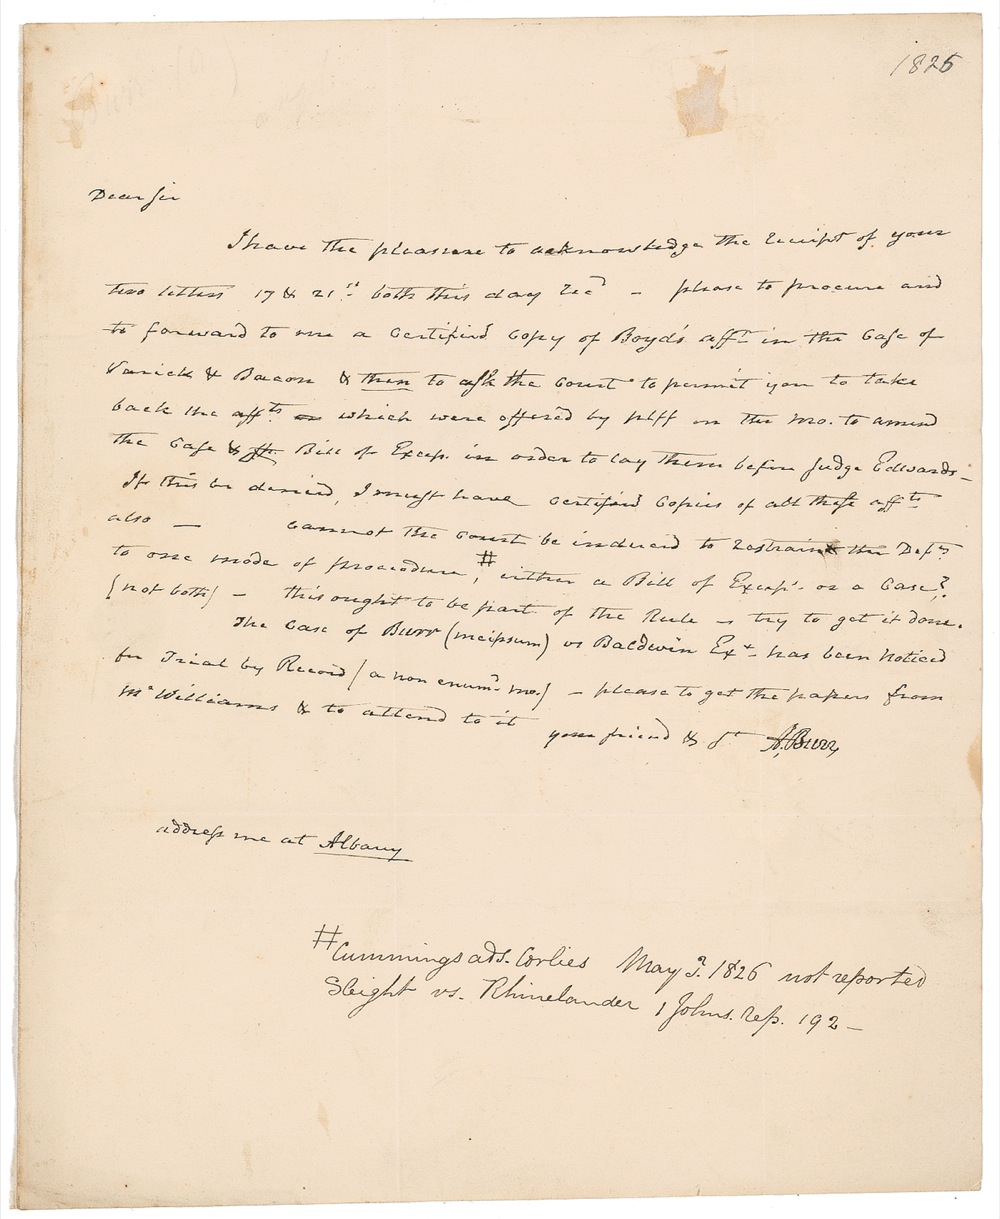 1826
Dear Sir
I have the pleasure to acknowledge the receipt of your
two letters 17 & 21st both this day recd – please to procure and
to forward to me a certified copy of Boyd's afft in the Case of
Varick & Bacon & then to ask the court to permit you to take
back the affts which were offered by plff on the mo. to amend
the Case & Bill of Excep. in order to lay them before Judge Edwards –
If this be denied, I must have certified copies of all these affts
also – cannot the court be induced to restrain the Defts
to one mode of procedure, # either a Bill of Excep. or a Case?
(not both) – this ought to be part of the Rule – try to get it done.
The case of Burr (meipsum) vs Baldwin Exr has been noticed
for Trial by Record (a non enumd mo.) – please to get the papers from
McWilliams & to attend to it
your friend & St A. Burr
address me at Albany
# Cummings ads. Corlies May 3. 1826 not reported
Sleight vs. Rhinelander 1 Johns. Rep. 192 –